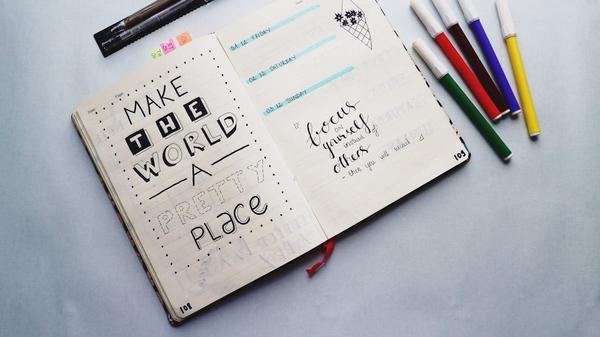 MAKE
THE
WORLD
A
PRETTY
PLACE
108
FRIDAY
02.12 SATURDAY
03.12 SUNDAY
If
focus
on
yourself
instead of
others
- then you will
109